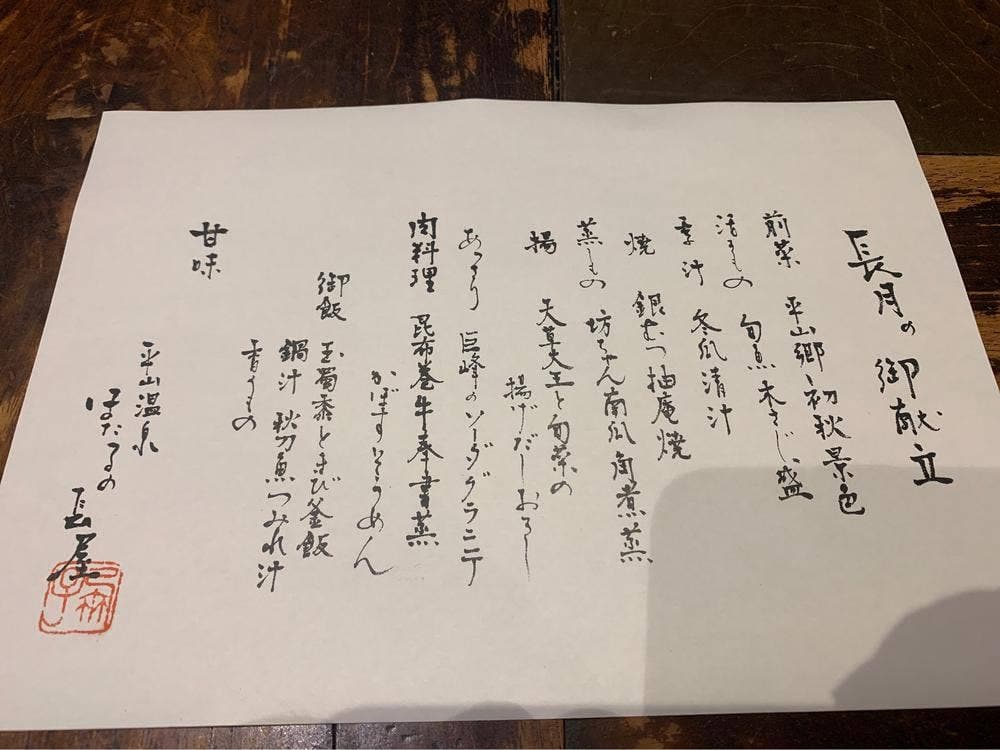 長月の御献立
前菜 平山郷 初秋景色
活きもの 旬魚木さじ盛
季汁 冬瓜清汁
焼 銀むつ柚庵焼
蒸しもの 坊ちゃん南瓜角煮蒸
揚 天草大王と旬菜の
揚げだしおろし
あっさり 巨峰のソーダグラニテ
肉料理 昆布巻牛奉書蒸
かぼすそうめん
御飯 玉蜀黍ときび釜飯
鍋汁 秋刀魚つみれ汁
香のもの
甘味
平山温泉
ほたるの
長屋